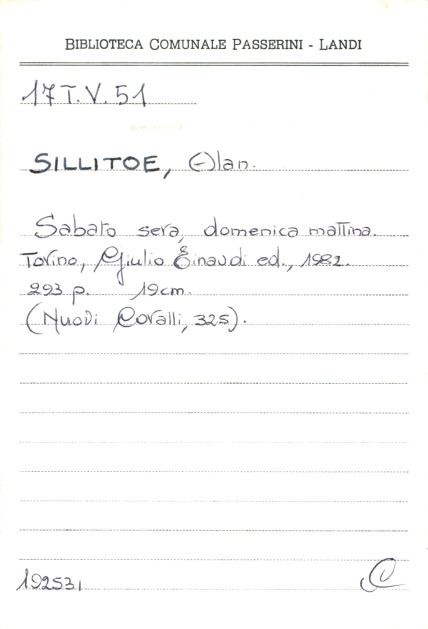 BIBLIOTECA COMUNALE PASSERINI - LANDI
17 T.V. 51
SILLITOE, Alan.
Sabato sera, domenica mattina.
Torino, Giulio Einaudi ed., 1982.
293 p. 19 cm.
(Nuovi Coralli, 325).
192531